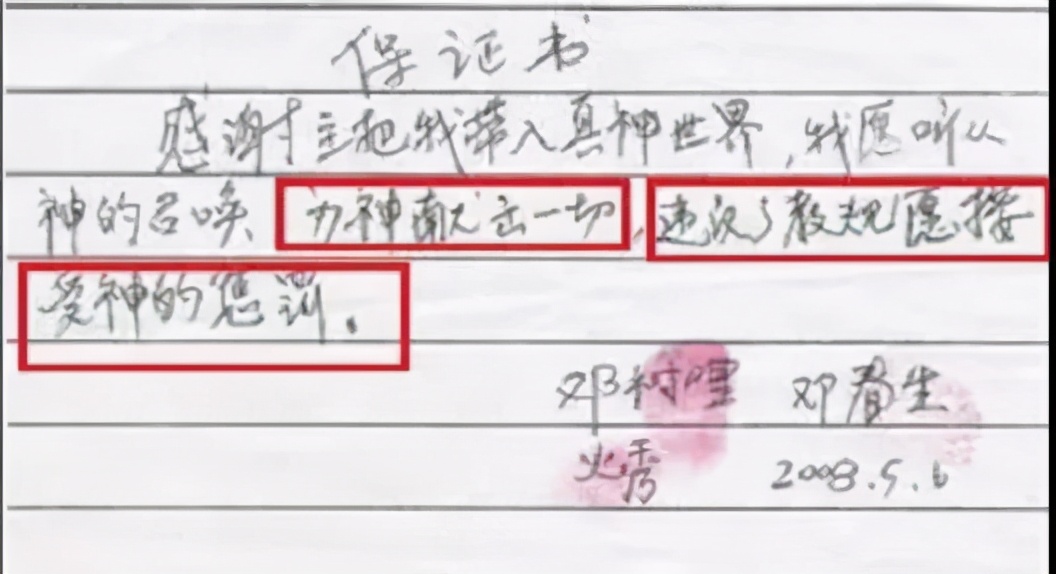 保证书
感谢主把我带入真神世界,我愿听从
神的召唤 为神献出一切,违反了教规愿接
受神的惩罚.
邓树哩 邓春生
火秀 2008.5.6